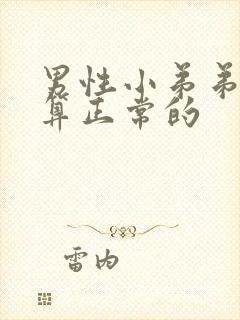 男性小弟弟
算正常的
雷内